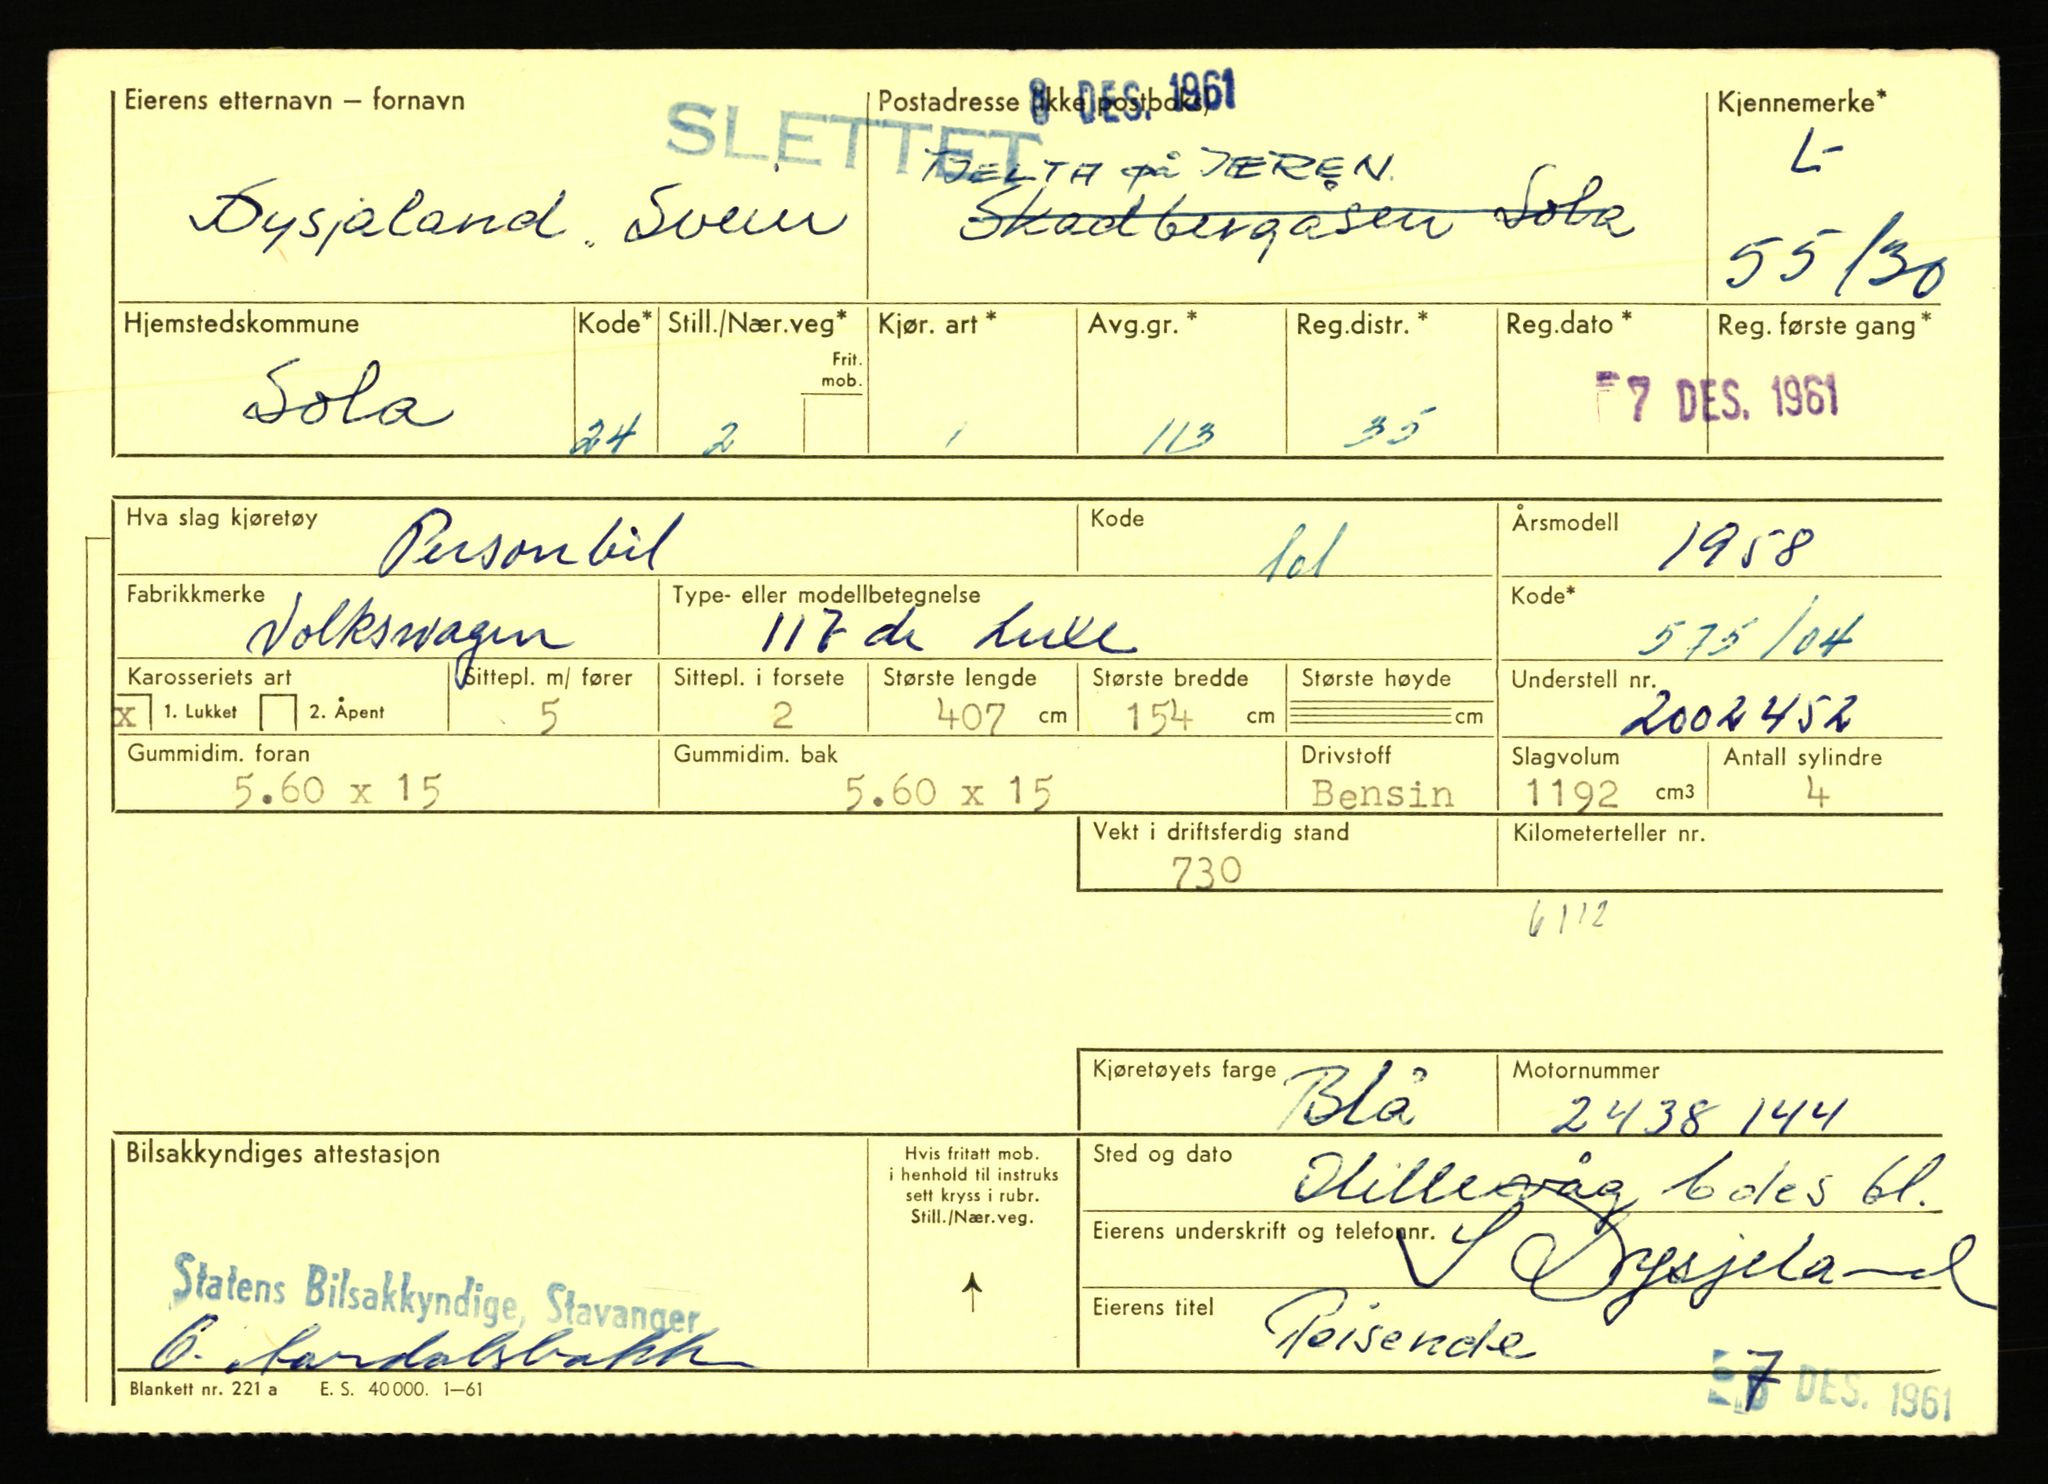 8 DES. 1961
Eierens etternavn – fornavn
SLETTET
Postadresse (ikke postboks)
Kjennemerke*
TJELTA på JÆREN.
L-
Dysjaland, Svein
Skadbergåsen Sola
55/30
Hjemstedskommune
Kode*
Still./Nær.veg*
Kjør. art *
Avg.gr. *
Reg.distr. *
Reg.dato *
Reg. første gang *
Frit. mob.
Sola
24
2
1
113
35
7 DES. 1961
Hva slag kjøretøy
Personbil
Kode
101
Årsmodell
1958
Fabrikkmerke
Volkswagen
Type- eller modellbetegnelse
117 de Luxe
Kode*
575/04
Karosseriets art
Sittepl. m/ fører
Sittepl. i forsete
Største lengde
Største bredde
Største høyde
Understell nr.
x 1. Lukket 2. Åpent
5
2
407 cm
154 cm
cm
2002452
Gummidim. foran
Gummidim. bak
Drivstoff
Slagvolum
Antall sylindre
5.60 x 15
5.60 x 15
Bensin
1192 cm3
4
Vekt i driftsferdig stand
Kilometerteller nr.
730
6112
Kjøretøyets farge
Blå
Motornummer
2438144
Bilsakkyndiges attestasjon
Hvis fritatt mob.
i henhold til instruks
sett kryss i rubr.
Still./Nær.veg.
Sted og dato
Hillevåg 6 des 61.
Eierens underskrift og telefonnr.
S Dysjeland
Statens Bilsakkyndige, Stavanger
Eierens titel
Reisende
Blankett nr. 221 a E. S. 40 000. 1–61
7 DES. 1961